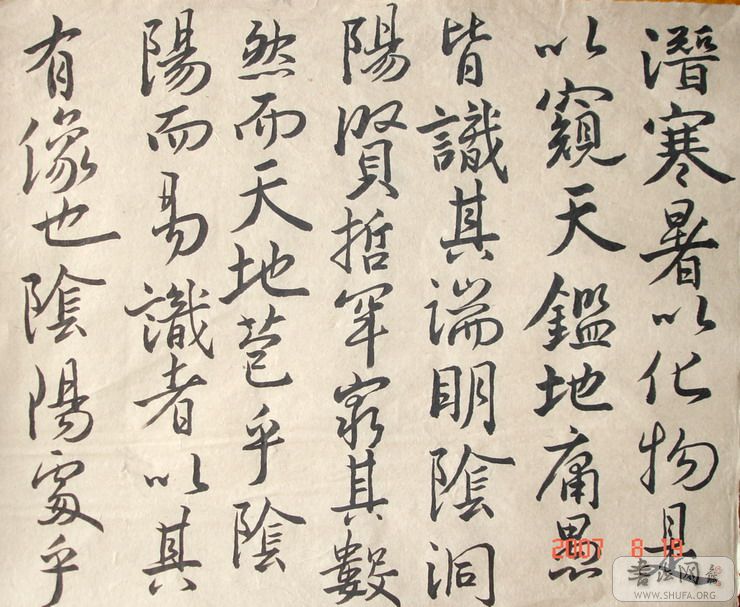 潛寒暑以化物是
以窺天鑑地庸愚
皆識其端明陰洞
陽賢哲罕窮其數
然而天地苞乎陰
陽而易識者以其
有像也陰陽處乎
2007 8 19
WWW.SHUFA.ORG